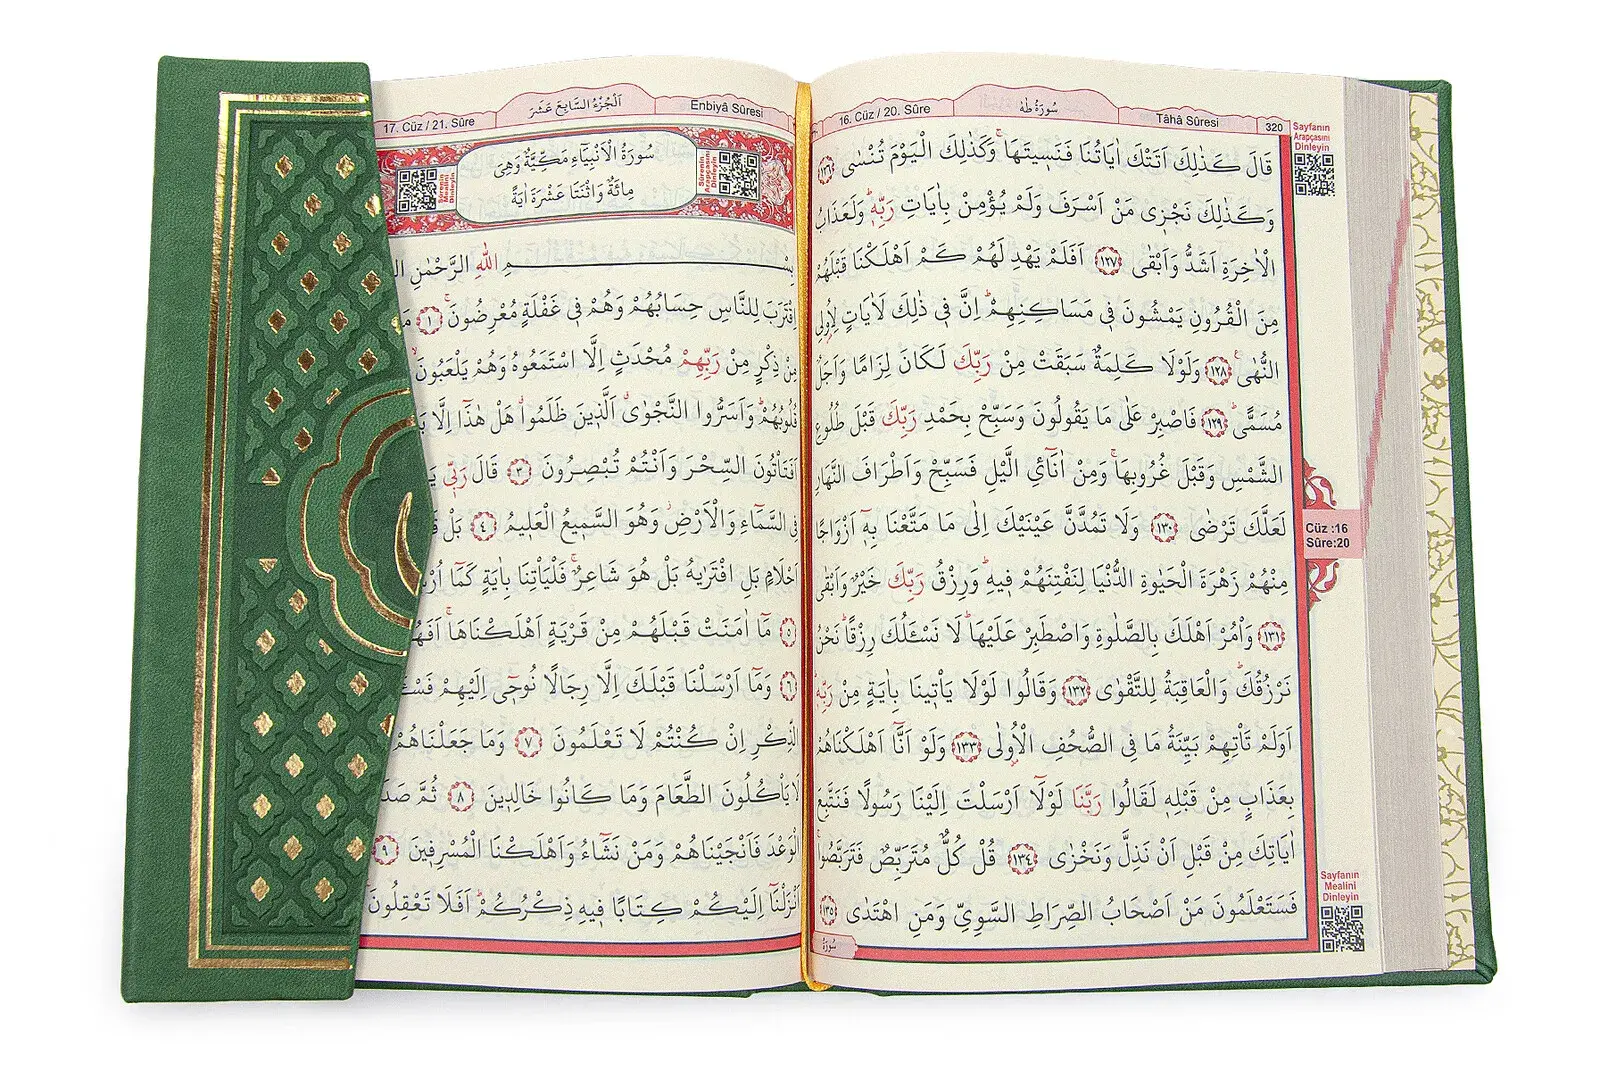 16. Cüz / 20. Sûre
سُورَةُ طٰهٰ
Tâhâ Sûresi
320
Sayfanın
Arapçasını
Dinleyin
قَالَ كَذٰلِكَ اَتَتْكَ اٰيَاتُنَا فَنَسٖيتَهَاۚ وَكَذٰلِكَ الْيَوْمَ تُنْسٰى ﴿١٢٦﴾
وَكَذٰلِكَ نَجْزٖى مَنْ اَسْرَفَ وَلَمْ يُؤْمِنْ بِاٰيَاتِ رَبِّهٖۜ وَلَعَذَابُ
الْاٰخِرَةِ اَشَدُّ وَاَبْقٰى ﴿١٢٧﴾ اَفَلَمْ يَهْدِ لَهُمْ كَمْ اَهْلَكْنَا قَبْلَهُمْ
مِنَ الْقُرُونِ يَمْشُونَ فٖى مَسَاكِنِهِمْۜ اِنَّ فٖى ذٰلِكَ لَاٰيَاتٍ لِاُولِى
النُّهٰىۚ ﴿١٢٨﴾ وَلَوْلَا كَلِمَةٌ سَبَقَتْ مِنْ رَبِّكَ لَكَانَ لِزَامًا وَاَجَلٌ
مُسَمًّىۜ ﴿١٢٩﴾ فَاصْبِرْ عَلٰى مَا يَقُولُونَ وَسَبِّحْ بِحَمْدِ رَبِّكَ قَبْلَ طُلُوعِ
الشَّمْسِ وَقَبْلَ غُرُوبِهَاۚ وَمِنْ اٰنَٓائِ الَّيْلِ فَسَبِّحْ وَاَطْرَافَ النَّهَارِ
لَعَلَّكَ تَرْضٰى ﴿١٣٠﴾ وَلَا تَمُدَّنَّ عَيْنَيْكَ اِلٰى مَا مَتَّعْنَا بِهٖٓ اَزْوَاجًا
مِنْهُمْ زَهْرَةَ الْحَيٰوةِ الدُّنْيَا لِنَفْتِنَهُمْ فٖيهِۜ وَرِزْقُ رَبِّكَ خَيْرٌ وَاَبْقٰى
﴿١٣١﴾ وَأْمُرْ اَهْلَكَ بِالصَّلٰوةِ وَاصْطَبِرْ عَلَيْهَاۜ لَا نَسْـَٔلُكَ رِزْقًاۜ نَحْنُ
نَرْزُقُكَۜ وَالْعَاقِبَةُ لِلتَّقْوٰى ﴿١٣٢﴾ وَقَالُوا لَوْلَا يَأْتٖينَا بِاٰيَةٍ مِنْ رَبِّهٖۜ
اَوَلَمْ تَأْتِهِمْ بَيِّنَةُ مَا فِى الصُّحُفِ الْاُولٰى ﴿١٣٣﴾ وَلَوْ اَنَّٓا اَهْلَكْنَاهُمْ
بِعَذَابٍ مِنْ قَبْلِهٖ لَقَالُوا رَبَّنَا لَوْلَٓا اَرْسَلْتَ اِلَيْنَا رَسُولًا فَنَتَّبِعَ
اٰيَاتِكَ مِنْ قَبْلِ اَنْ نَذِلَّ وَنَخْزٰى ﴿١٣٤﴾ قُلْ كُلٌّ مُتَرَبِّصٌ فَتَرَبَّصُواۚ
فَسَتَعْلَمُونَ مَنْ اَصْحَابُ الصِّرَاطِ السَّوِىِّ وَمَنِ اهْتَدٰى ﴿١٣٥﴾
Cüz :16
Sûre:20
Sayfanın
Mealini
Dinleyin
سُورَةُ
17. Cüz / 21. Sûre
اَلْجُزْءُ السَّابِعَ عَشَرَ
Enbiyâ Sûresi
Sûrenin
Arapçasını
Dinleyin
سُورَةُ الْاَنْبِيَٓاءِ مَكِّيَّةٌ وَهِىَ
مِائَةٌ وَاثْنَتَا عَشْرَةَ اٰيَةً
Mealini
Dinleyin
بِسْمِ اللّٰهِ الرَّحْمٰنِ
اِقْتَرَبَ لِلنَّاسِ حِسَابُهُمْ وَهُمْ فٖى غَفْلَةٍ مُعْرِضُونَۚ ﴿١﴾
مِنْ ذِكْرٍ مِنْ رَبِّهِمْ مُحْدَثٍ اِلَّا اسْتَمَعُوهُ وَهُمْ يَلْعَبُونَۙ
قُلُوبُهُمْۜ وَاَسَرُّوا النَّجْوٰىۗ اَلَّذٖينَ ظَلَمُواۗ هَلْ هٰذَٓا اِلَّا
اَفَتَأْتُونَ السِّحْرَ وَاَنْتُمْ تُبْصِرُونَ ﴿٣﴾ قَالَ رَبّٖى
فِى السَّمَٓاءِ وَالْاَرْضِۘ وَهُوَ السَّمٖيعُ الْعَلٖيمُ ﴿٤﴾ بَلْ
اَحْلَامٍ بَلِ افْتَرٰيهُ بَلْ هُوَ شَاعِرٌۚ فَلْيَأْتِنَا بِاٰيَةٍ كَمَٓا
﴿٥﴾ مَٓا اٰمَنَتْ قَبْلَهُمْ مِنْ قَرْيَةٍ اَهْلَكْنَاهَاۚ
﴿٦﴾ وَمَٓا اَرْسَلْنَا قَبْلَكَ اِلَّا رِجَالًا نُوحٖٓى اِلَيْهِمْ
الذِّكْرِ اِنْ كُنْتُمْ لَا تَعْلَمُونَ ﴿٧﴾ وَمَا جَعَلْنَاهُمْ
لَا يَأْكُلُونَ الطَّعَامَ وَمَا كَانُوا خَالِدٖينَ ﴿٨﴾ ثُمَّ
الْوَعْدَ فَاَنْجَيْنَاهُمْ وَمَنْ نَشَٓاءُ وَاَهْلَكْنَا الْمُسْرِفٖينَ ﴿٩﴾
اَنْزَلْنَٓا اِلَيْكُمْ كِتَابًا فٖيهِ ذِكْرُكُمْۜ اَفَلَا تَعْقِلُونَ